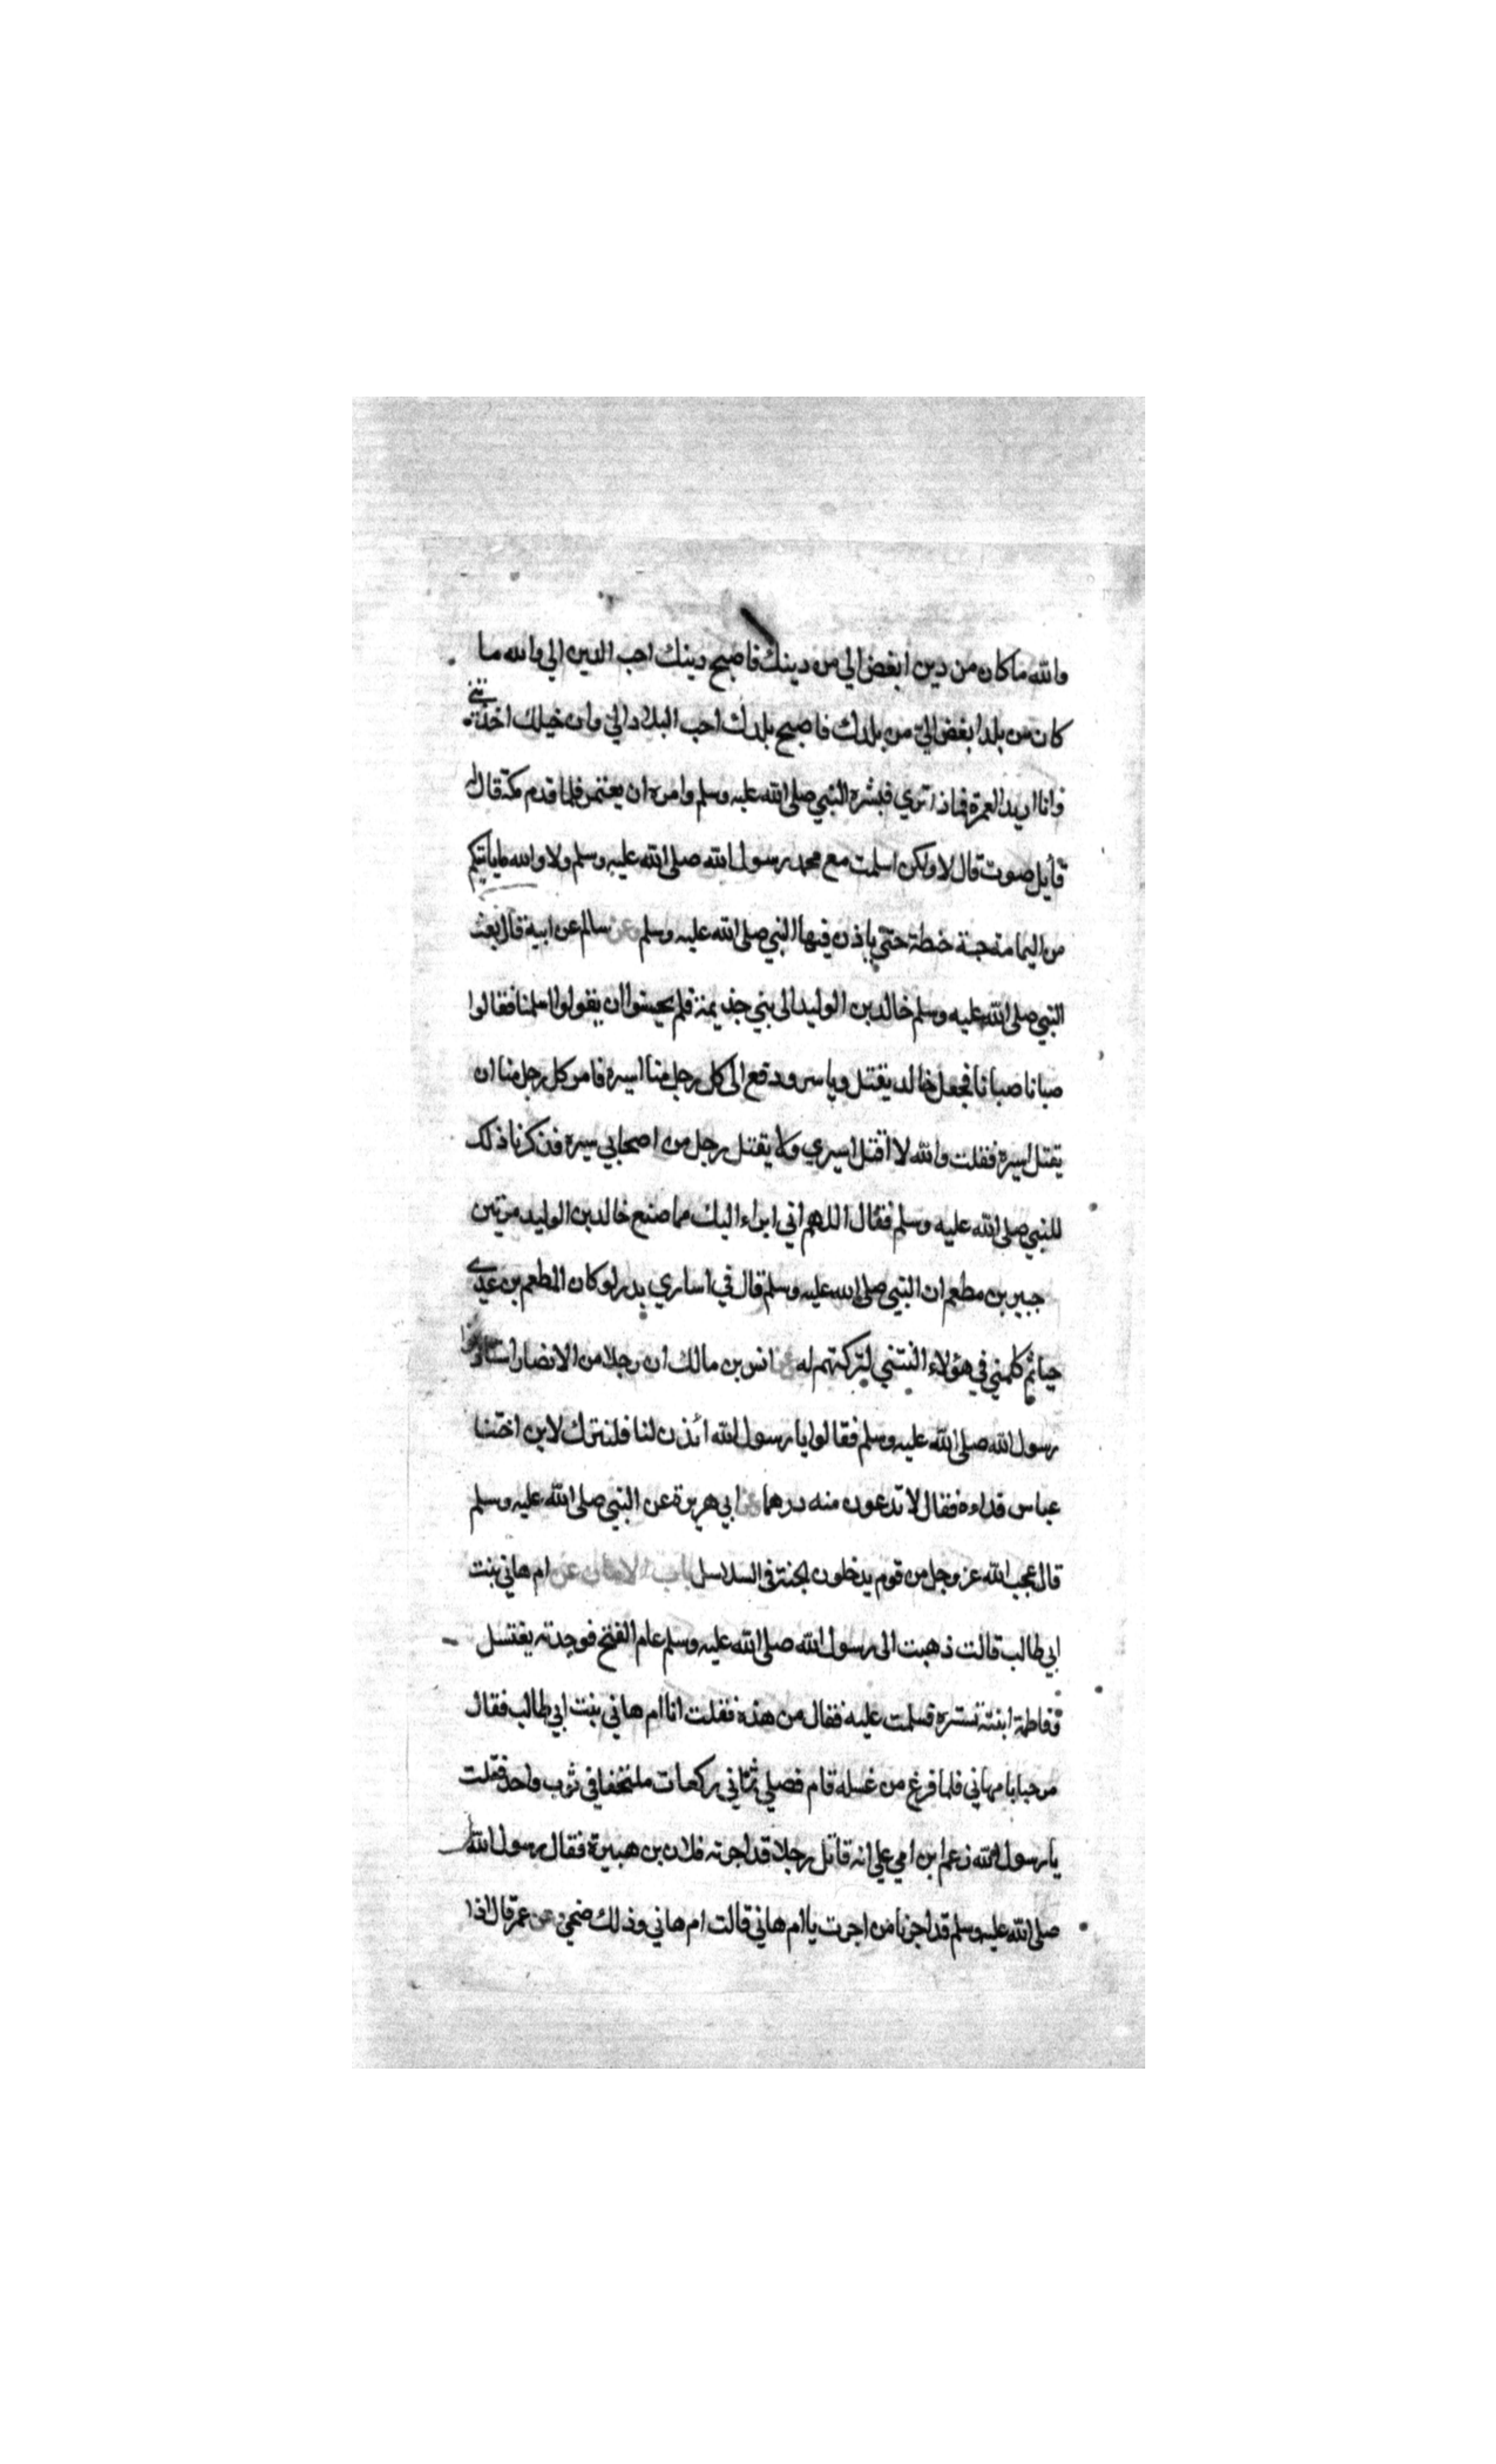 والله ماكان من دين ابغض الي من دينك فاصبح دينك احب الدين الي والله ما
كان من بلد ابغض الي من بلدك فاصبح بلدك احب البلاد الي وان خيلك اخذتني
وانا اريد العمرة فماذا تري فبشره النبي صلى الله عليه وسلم وامره ان يعتمر فلما قدم مكة قال له
قايل صبوت قال لا ولكن اسلمت مع محمد رسول الله صلى الله عليه وسلم ولا والله ما ياتيكم
من اليمامة حبة حنطة حتي ياذن فيها النبي صلى الله عليه وسلم وعن سالم عن ابيه قال بعث
النبي صلى الله عليه وسلم خالد بن الوليد الى بني جذيمة فلم يحسنوا ان يقولوا اسلمنا فقالوا
صبانا صبانا فجعل خالد يقتل وياسر ودفع الى كل رجل منا اسيره فامر كل رجل منا ان
يقتل اسيره فقلت والله لا اقتل اسيري ولا يقتل رجل من اصحابي سيره فذكرنا ذلك
للنبي صلى الله عليه وسلم فقال اللهم اني ابراء اليك مما صنع خالد بن الوليد مرتين
جبير بن مطعم ان النبي صلى الله عليه وسلم قال في اساري بدر لو كان المطعم بن عدي
حيا ثم كلمني في هؤلاء النتني لتركتهم له عن انس بن مالك ان رجلا من الانصار استاذنوا
رسول الله صلى الله عليه وسلم فقالوا يا رسول الله ائذن لنا فلنترك لابن اختنا
عباس فداءه فقال لا تدعون منه درهما عن ابي هريرة عن النبي صلى الله عليه وسلم
قال عجب الله عز وجل من قوم يدخلون الجنة في السلاسل باب الامان عن ام هاني بنت
ابي طالب قالت ذهبت الى رسول الله صلى الله عليه وسلم عام الفتح فوجدته يغتسل
وفاطمة ابنته تستره فسلمت عليه فقال من هذه فقلت انا ام هاني بنت ابي طالب فقال
مرحبا بام هاني فلما فرغ من غسله قام فصلي ثماني ركعات ملتحفا في ثوب واحد فقلت
يا رسول الله زعم ابن امي علي انه قاتل رجلا قد اجرته فلان بن هبيرة فقال رسول الله
صلى الله عليه وسلم قد اجرنا من اجرت يا ام هاني قالت ام هاني وذلك ضحي عن عمر قال اذا